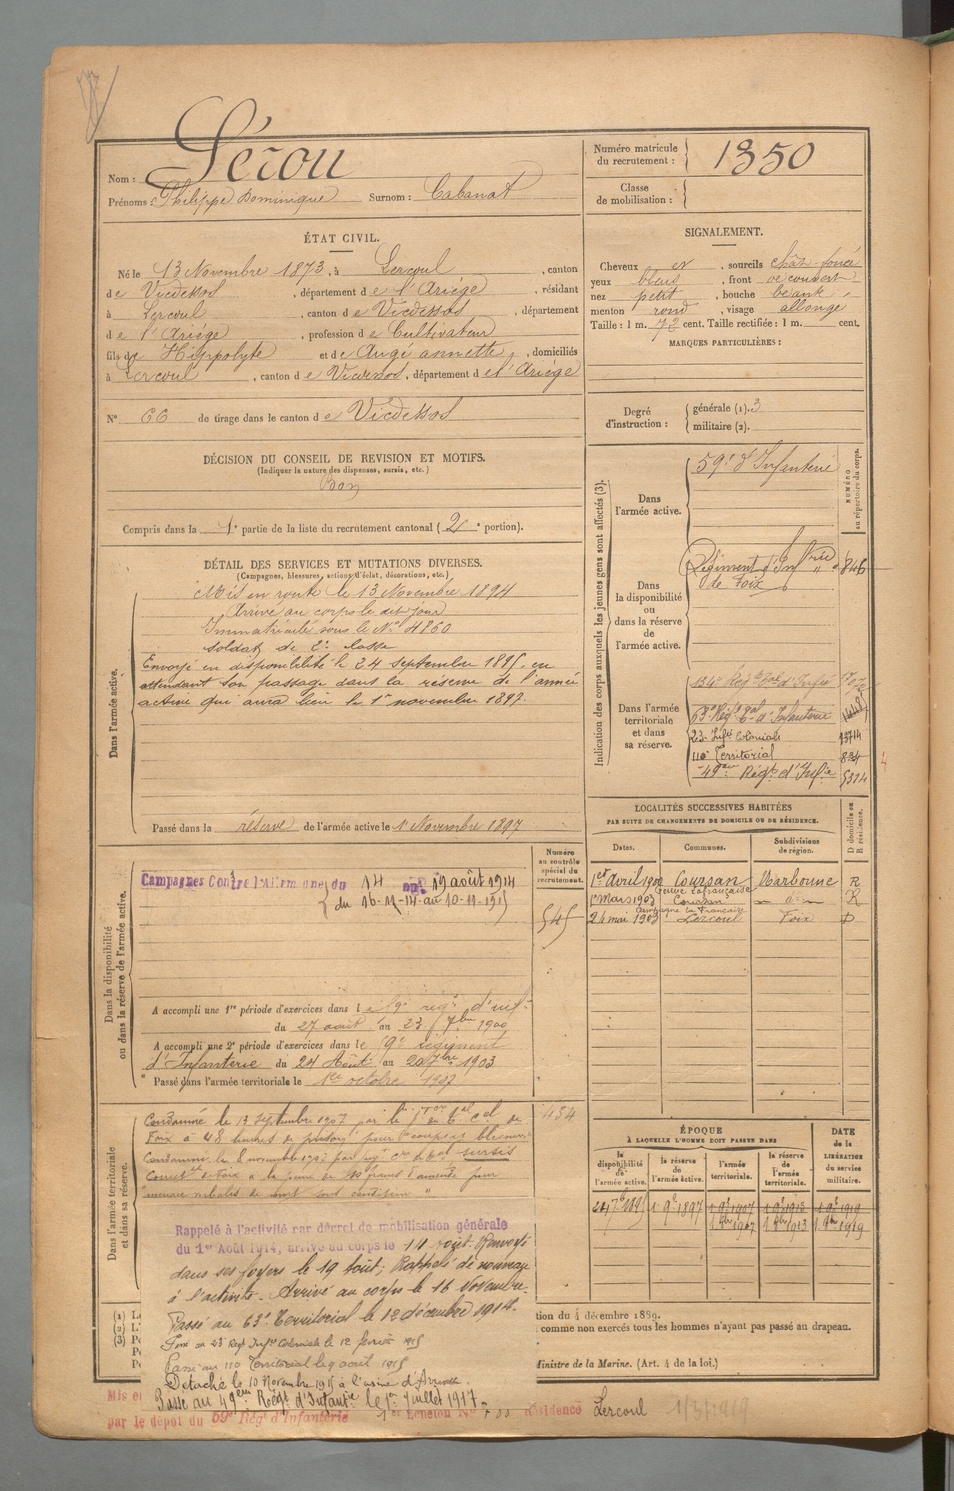 Nom : Lérou
Prénoms : Philippe Dominique Surnom : Cabanat
Numéro matricule du recrutement : 1350
Classe de mobilisation :
ÉTAT CIVIL.
Né le 13 Novembre 1873, à Lercoul, canton
de Vicdessos, département de l'Ariège, résidant
à Lercoul, canton de Vicdessos, département
de l'Ariège, profession de Cultivateur
fils de Hippolyte et de Augé annette, domiciliés
à Lercoul, canton de Vicdessos, département de l'Ariège
N° 66 de tirage dans le canton de Vicdessos
SIGNALEMENT.
Cheveux et, sourcils chât. foncé
yeux bleus, front découvert
nez petit, bouche béante
menton rond, visage allongé
Taille : 1 m. 72 cent. Taille rectifiée : 1 m. cent.
MARQUES PARTICULIÈRES :
Degré d'instruction : générale (1). 3
militaire (2).
DÉCISION DU CONSEIL DE REVISION ET MOTIFS.
(Indiquer la nature des dispenses, sursis, etc.)
Bon
Compris dans la 1e partie de la liste du recrutement cantonal (2e portion).
DÉTAIL DES SERVICES ET MUTATIONS DIVERSES.
(Campagnes, blessures, actions d'éclat, décorations, etc.)
Dans l'armée active.
Mis en route le 13 Novembre 1894
Arrivé au corps le dit jour
Immatriculé sous le N° 4860
soldat de 2e classe
Envoyé en disponibilité le 24 septembre 1895, en
attendant son passage dans la réserve de l'armée
active qui aura lieu le 1er novembre 1897.
Passé dans la réserve de l'armée active le 1 Novembre 1897
Indication des corps auxquels les jeunes gens sont affectés (3).
NUMÉRO au répertoire du corps.
Dans l'armée active.
59e d'Infanterie
Dans la disponibilité ou dans la réserve de l'armée active.
Régiment d'Infrie de Foix 846
Dans l'armée territoriale et dans sa réserve.
134e Régt Tal d'Infie
63e Régt Tal d'Infanterie
23e Infie Coloniale 13714
110e Territorial 834
49eme Régt d'Infie 5324
4
LOCALITÉS SUCCESSIVES HABITÉES
PAR SUITE DE CHANGEMENTS DE DOMICILE OU DE RÉSIDENCE.
Dates. Communes. Subdivisions de région. D domicile ou R résidence.
1er Avril 1900 Coursan Narbonne R
1 Mars 1903 Coursan R
24 mai 1903 Lercoul Foix D
Dans la disponibilité ou dans la réserve de l'armée active.
Numéro au contrôle spécial du recrutement.
545
Campagnes Contre l'Allemagne du 14 au 19 août 1914
du 16-11-14 au 10-11-1915
A accompli une 1re période d'exercices dans le 59e régt d'inf.
du 27 août au 23 7bre 1900
A accompli une 2e période d'exercices dans le 59e régiment
d'Infanterie du 24 Août au 20 7bre 1903
Passé dans l'armée territoriale le 1er octobre 1907
Dans l'armée territoriale et dans sa réserve.
434
Condamné le 13 septembre 1907 par le
Foix à 48 heures de prison pour
Condamné le 8 novembre 1907 par sursis
Correct. de Foix à la peine de francs d'amende pour
Rappelé à l'activité par décret de mobilisation générale
du 1er Août 1914, arrivé au corps le 14 août. Renvoyé
dans ses foyers le 19 août; Rappelé de nouveau
à l'activité. Arrivé au corps le 16 Novembre.
Passé au 63e Territorial le 12 décembre 1914.
Passé au 23 Régt Infie Coloniale le 12 février 1915
Passé au 110 Territorial le 9 août 1915
Détaché le 10 Novembre 1915 à l'usine d'
Passé au 49eme Régt d'Infantie le 1er Juillet 1917.
ÉPOQUE
À LAQUELLE L'HOMME DOIT PASSER DANS
la disponibilité de l'armée active. la réserve de l'armée active. l'armée territoriale. la réserve de l'armée territoriale. DATE de la LIBÉRATION du service militaire.
1 9e 1897 1 9e 1907 1 9e 1913 1 9e 1919
1 9bre 1907 1 9bre 1913 1 9bre 1919
(1)
(2)
(3)
tion du 4 décembre 1889.
comme non exercés tous les hommes n'ayant pas passé au drapeau.
Ministre de la Marine. (Art. 4 de la loi.)
Mis e
par le dépôt du 59e Régt d'Infanterie 1er Echelon N° Résidence Lercoul